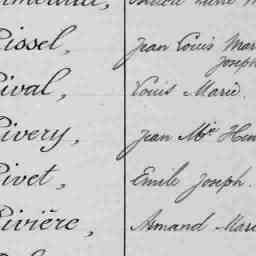 issel, Jean Louis Mar
Joseph
ival, Louis Marie.
ivery, Jean Mie Hen
ivet, Emile Joseph.
ivière, Armand Mari